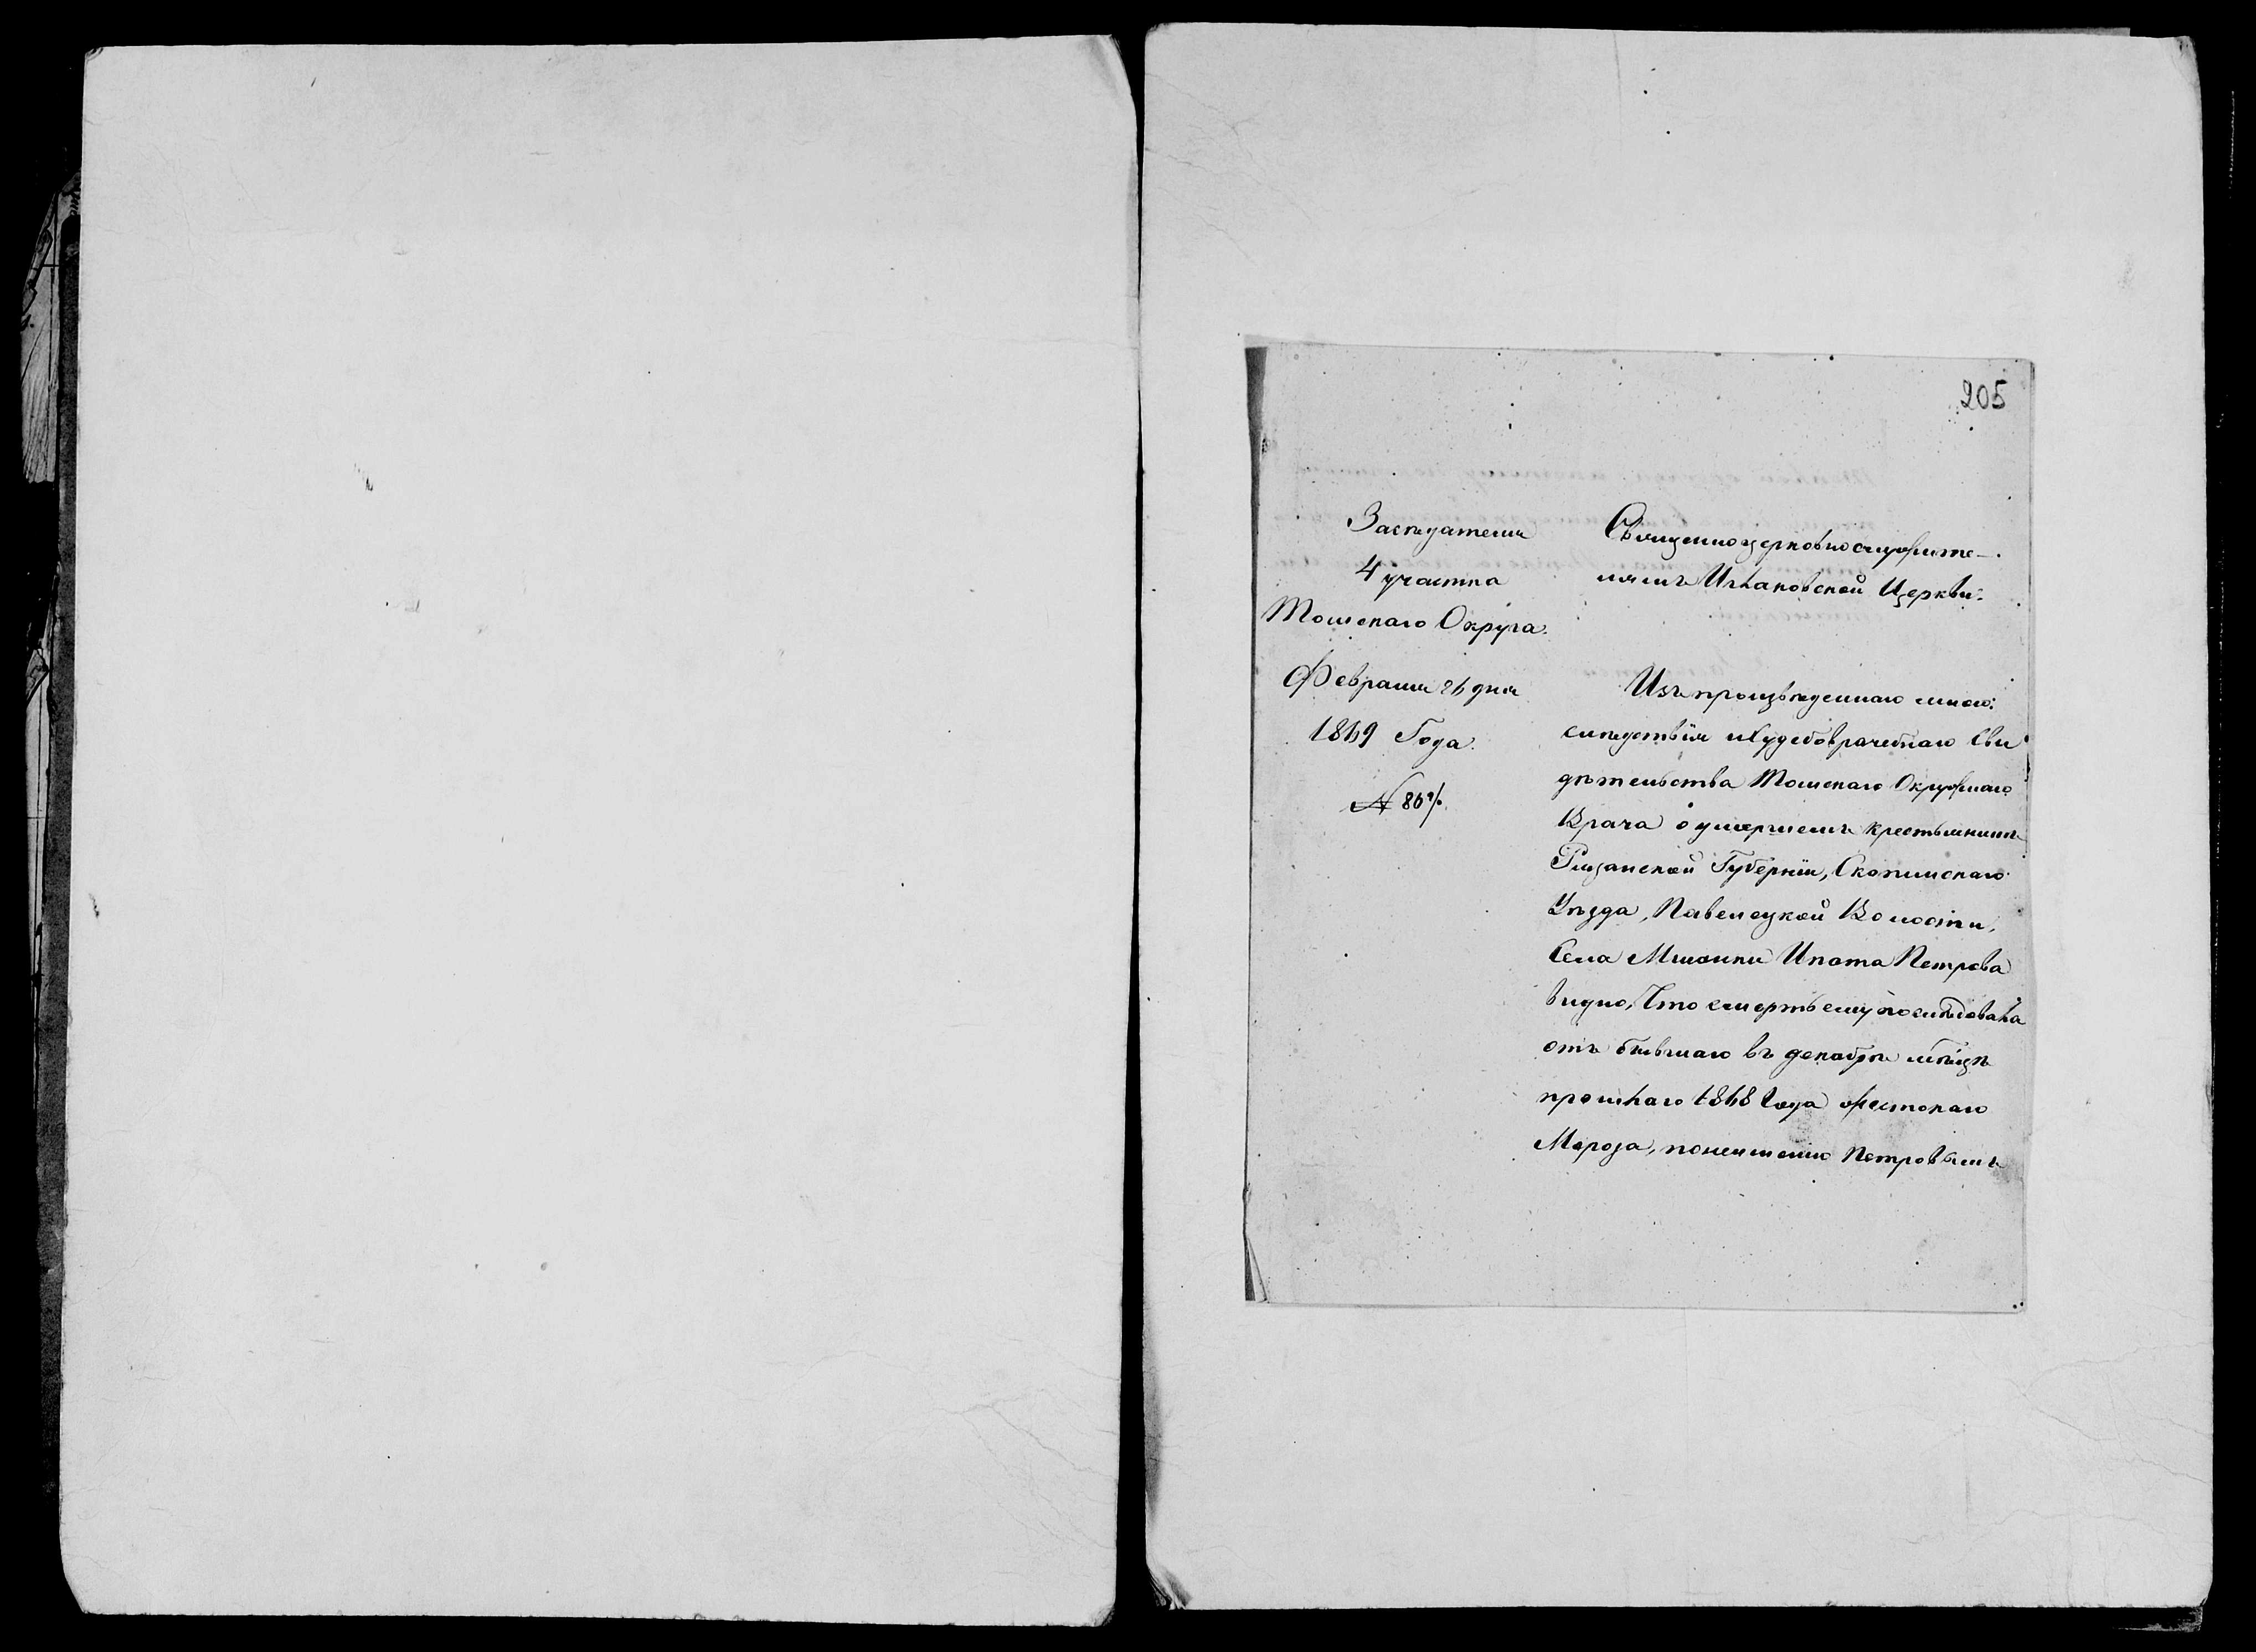 205
Заседателя
4 участка
Томскаго Округа.
Февраля 26 дня
1869 Года.
№ 86
Священноцерковнослужите-
лямъ Церкви.
Изъ произведеннаго мною
слѣдствія и Судебоврачебнаго Сви
дѣтельства Томскаго Окружнаго
Врача о умершемъ крестьянинѣ
Рязанской Губерніи, Скопинскаго
Уѣзда, Павелецкой Волости,
Села Ипата Петрова
видно, Что смерть ему послѣдовала
отъ бывшаго въ декабрѣ мѣсяцѣ
прошлаго 1868 года жестокаго
Мороза, понеимению Петровымъ